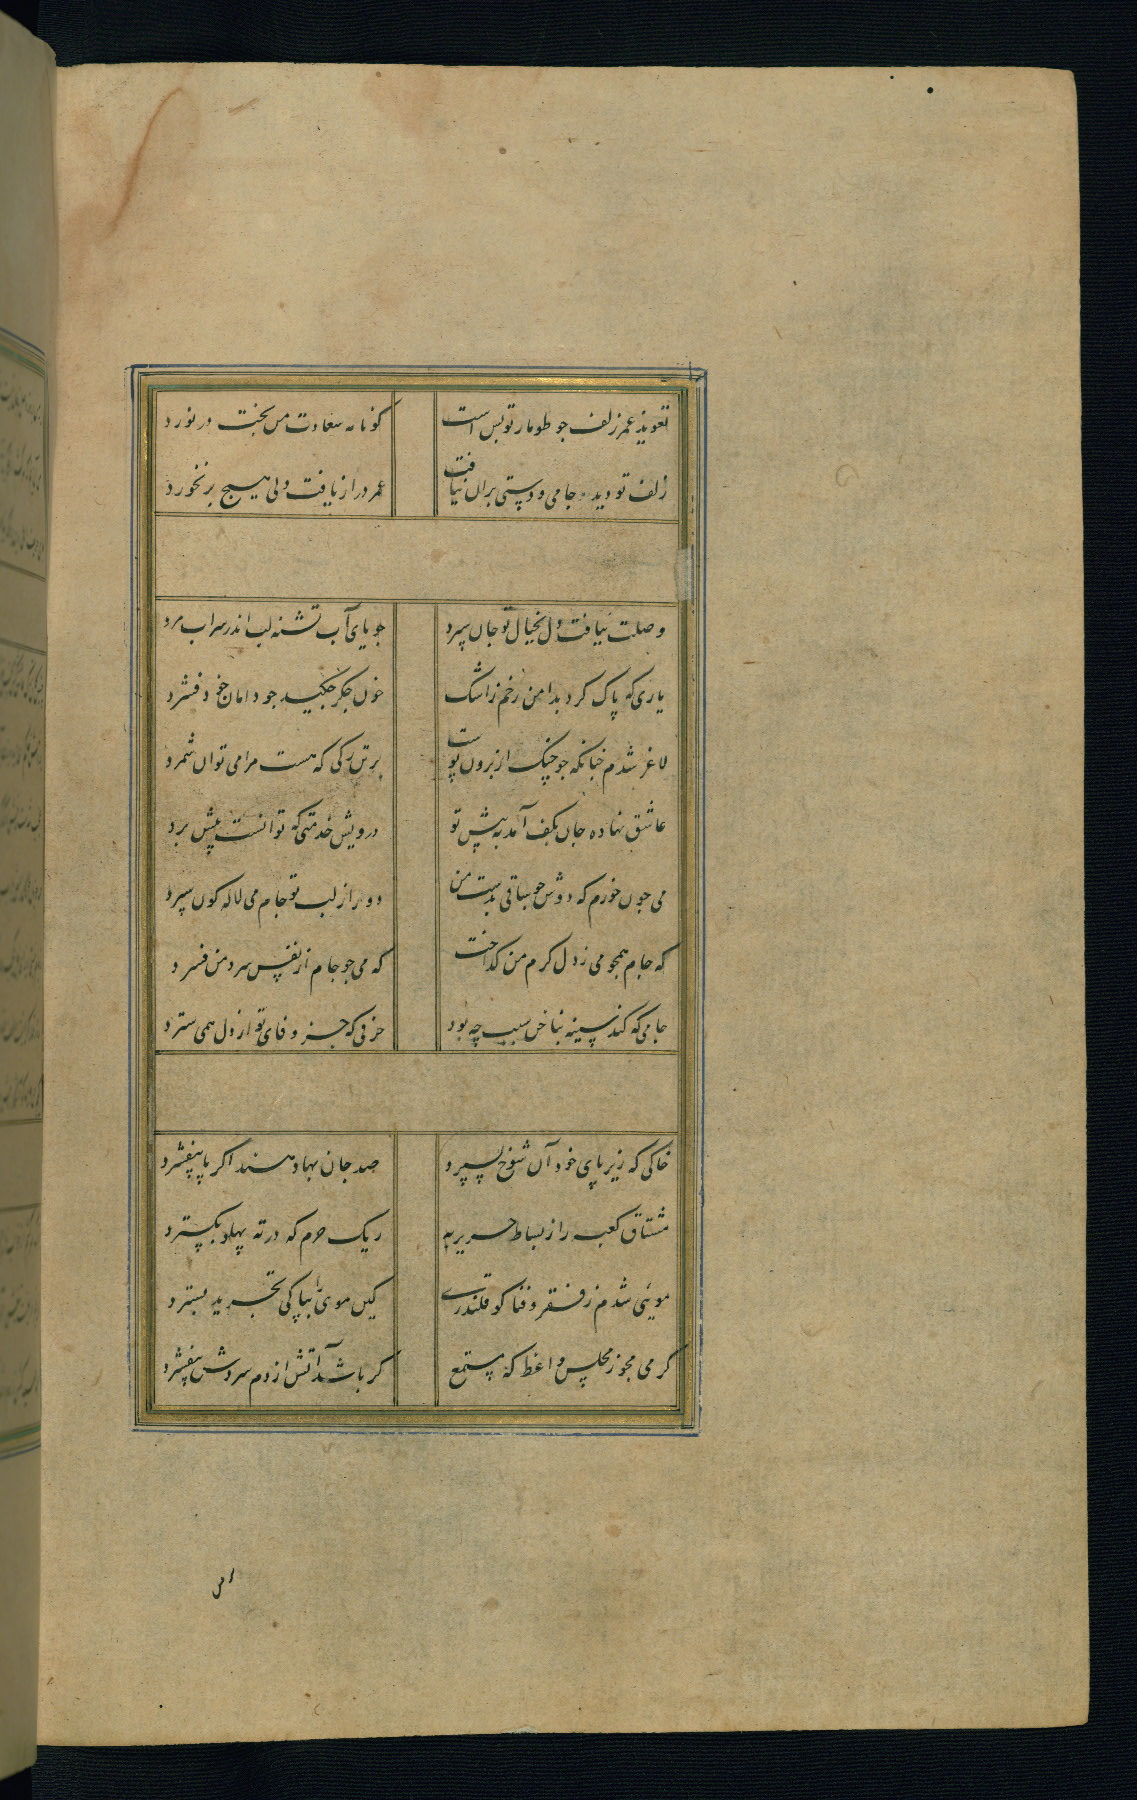 تعویذ عمر زلف جو طومار تو بس است کو نامه سعادت من بخت در نورد
زلف تو دید جامی و دستی بران نیافت عمر دراز یافت ولی هیچ بر نخورد
وصلت نیافت دل بخیال تو جان سپرد جویای آب تشنه لب اندر سراب مرد
یاری که پاک کرد بدامن رخم ز اشک خون جکر جکید جو دامان خود فشرد
لاغر شدم جنانکه جو جنک از برون پوست بر تن رکی که هست مرا می توان شمرد
عاشق نهاده جان بکف آمد به پیش تو درویش خدمتی که توانست پیش برد
می جون خورم که دوش جو ساقی بدست من دور از لب تو جام می لاله کون سپرد
که جام همجو می ز دل کرم من کداخت که می جو جام از نفس سرد من فسرد
جامی که کند سینه بناخن سبب چه بود حرفی که جز وفای تو از دل همی سترد
خاکی که زیر پای خود آن شوخ بسپرد صد جان بها دهند اکر پا بیفشرد
مشتاق کعبه را ز بساط حریر به ریک حرم که در ته پهلو بکسترد
مویی شدم ز فقر و فنا کو قلندری کین موی را بپاکی تجرید بسترد
کرمی مجو ز مجلس واعظ که مستمع کر باشد آتش از دم سردش بیفشرد